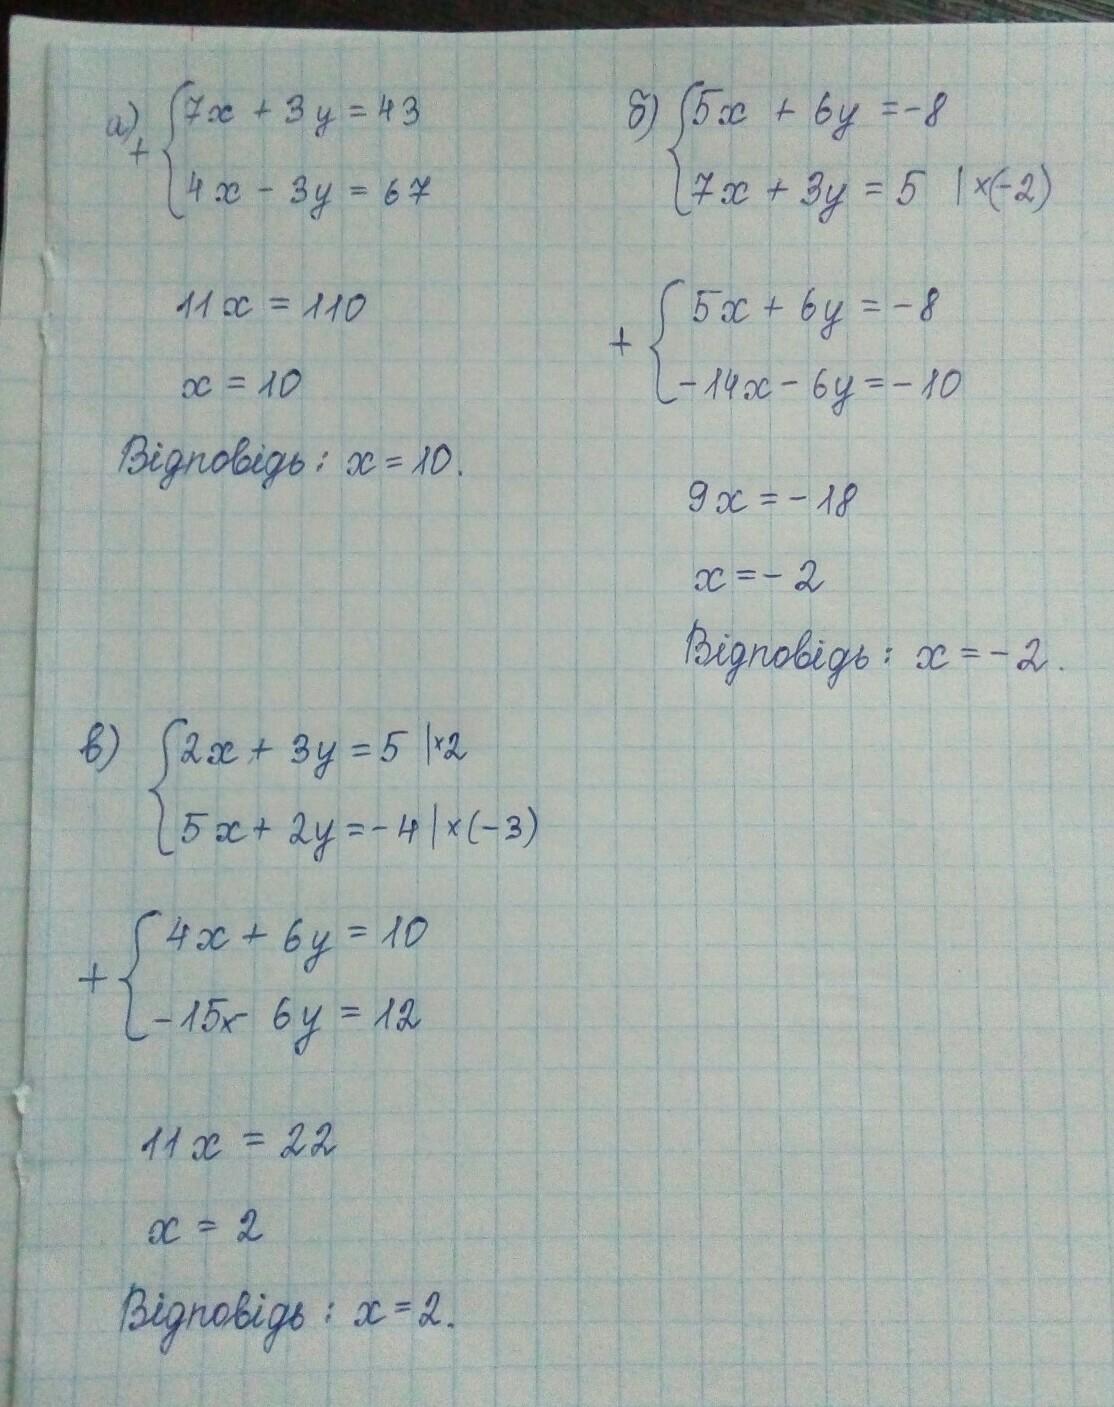 а) + { 7x + 3y = 43
4x - 3y = 67
11x = 110
x = 10
Відповідь: x = 10.
б) { 5x + 6y = -8
7x + 3y = 5 | ×(-2)
+ { 5x + 6y = -8
-14x - 6y = -10
9x = -18
x = -2
Відповідь: x = -2.
в) { 2x + 3y = 5 |×2
5x + 2y = -4 | ×(-3)
+ { 4x + 6y = 10
-15x - 6y = 12
11x = 22
x = 2
Відповідь: x = 2.